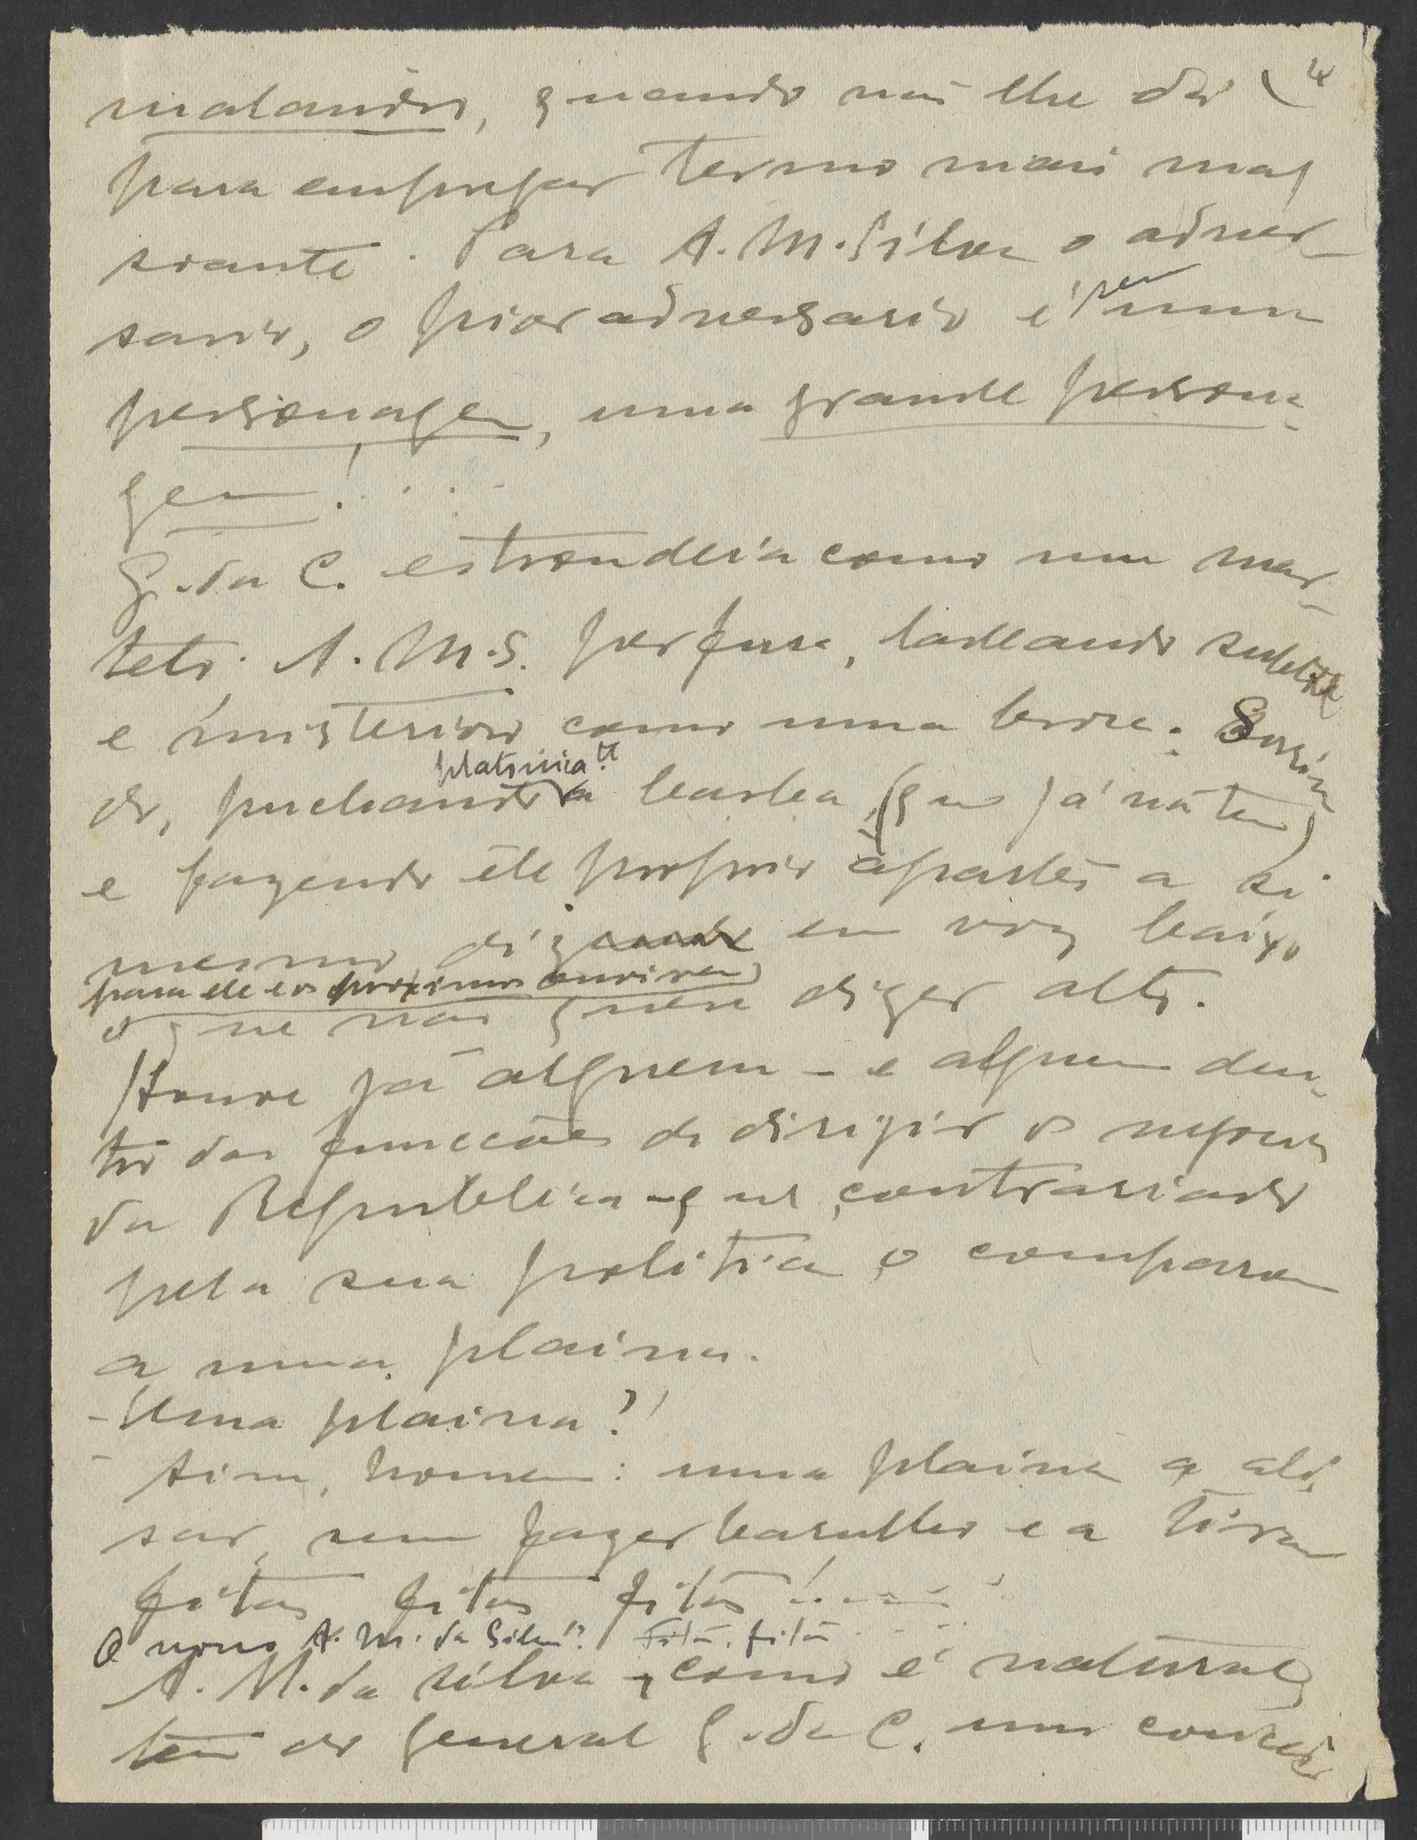 4
malandro, quando não lhe dá
para empregar termo mais mal
soante. Para A. M. Silva o adver-
sario, o pior adversario é sempre uma
personagem, uma grande persona-
gem!....
G. da C. estrondeia como um mar-
telo. A. M. S. perfura, ladeando subtil
e misterioso como uma broca. Sorrin-
do, puchando a platinica barba (que já não tem)
e fazendo êle proprio ápartes a si
mesmo diz em voz baixa,
para ele e os proximos ouvirem,
o que não quere dizer alto.
Houve já alguem - e alguem den-
tro das funcções de dirigir os negocios
da Republica - que, contrariado
pela sua politica, o comparou
a uma plaina.
- Uma plaina?!
- Sim, homem: uma plaina a ali-
sar, sem fazer barulho e a tirar
fitas fitas fitas!....
O novo A. M. da Silva? Fitas, fitas....
A. M. da Silva, como é natural,
tem do general G. da C. um conceito